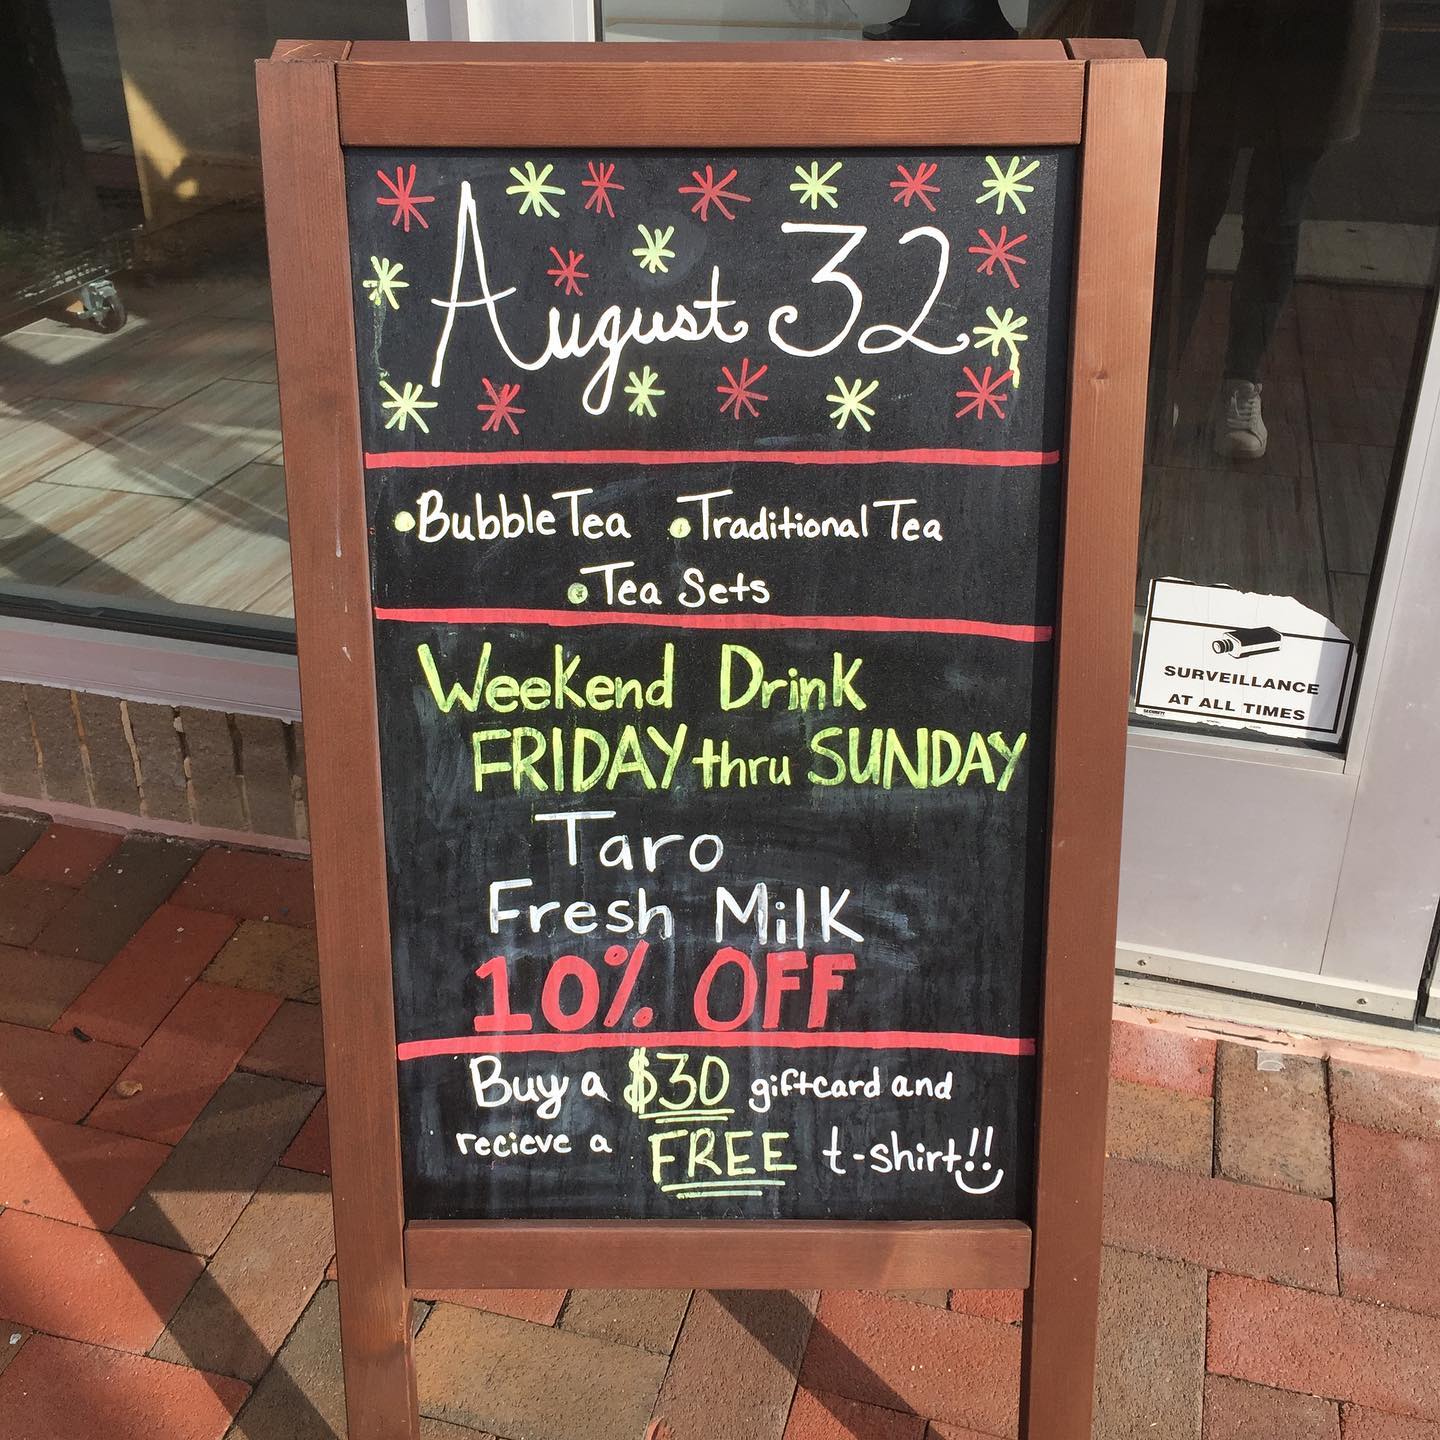 August 32
• Bubble Tea • Traditional Tea
• Tea Sets
Weekend Drink
FRIDAY thru SUNDAY
Taro
Fresh Milk
10% OFF
Buy a $30 giftcard and
recieve a FREE t-shirt!!
SURVEILLANCE
AT ALL TIMES